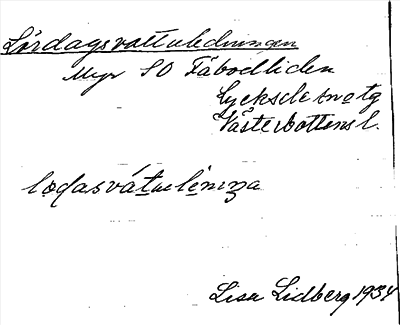 Lördagsvattuledningen
Myr SO Fäbodliden
Lycksele snetg
Västerbottens l.
lodasvátulèninza
Lisa Lidberg 1934